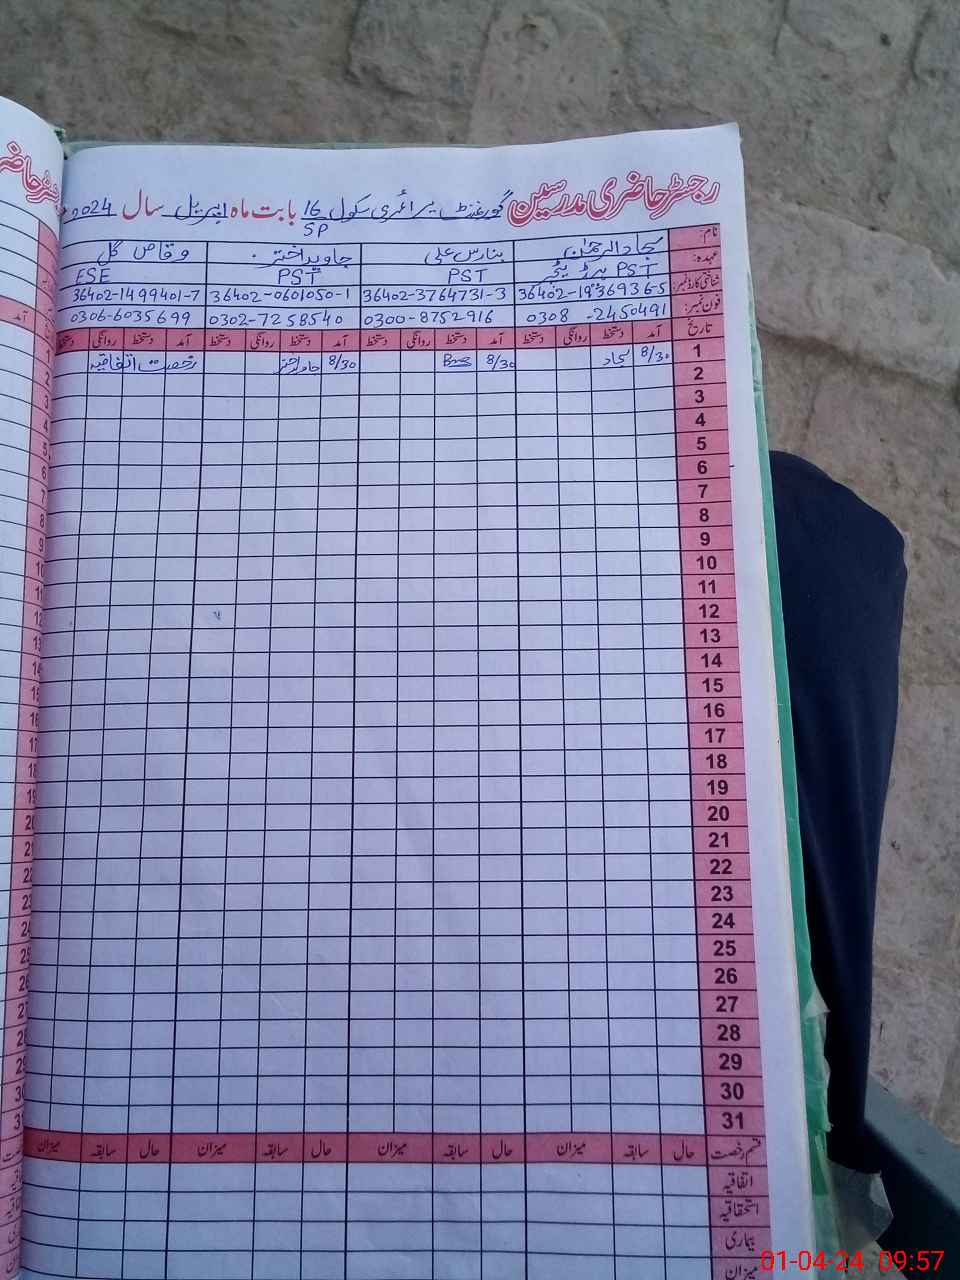 رجسٹر حاضری مدرسین گورنمنٹ پرائمری سکول 16/SP بابت ماہ اپریل سال 2024
نام: سجاد الرحمٰن بنارس علی جاوید اختر وقاص گل
عہدہ: PST ہیڈ ٹیچر PST PST ESE
شناختی کارڈ نمبر: 36402-3764731-3 36402-0601050-1 36402-1499401-7
فون نمبر: 0308-2450491 0300-8752916 0302-7258540 0306-6035699
تاریخ آمد دستخط روانگی دستخط آمد دستخط روانگی دستخط آمد دستخط روانگی دستخط آمد دستخط روانگی دستخط
1 8/30 سجاد 8/30 8/30 جاوید اختر رخصت اتفاقیہ
2
3
4
5
6
7
8
9
10
11
12
13
14
15
16
17
18
19
20
21
22
23
24
25
26
27
28
29
30
31
قسم رخصت حال سابقہ میزان حال سابقہ میزان حال سابقہ میزان حال سابقہ میزان
اتفاقیہ
استحقاقیہ
بیماری
میزان
01-04-24 09:57